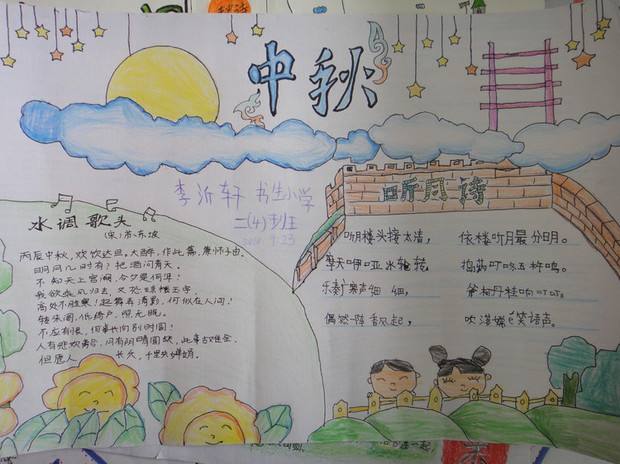 中秋
李沂轩 书生小学
二(4)班
9.23
水调歌头
(宋)苏东坡
丙辰中秋,欢饮达旦,大醉,作此篇,兼怀子由。
明月几时有?把酒问青天。
不知天上宫阙,今夕是何年?
我欲乘风归去,又恐琼楼玉宇,
高处不胜寒!起舞弄清影,何似在人间!
转朱阁,低绮户,照无眠。
不应有恨,何事长向别时圆!
人有悲欢离合,月有阴晴圆缺,此事古难全。
但愿人 长久,千里共婵娟。
听月诗
听月楼头接太清, 依楼听月最分明。
摩天咿哑冰轮转, 捣药叮咚玉杵鸣。
乐奏广寒声细细, 斧柯丹桂响叮叮。
偶然一阵香风起, 吹落嫦笑语声。